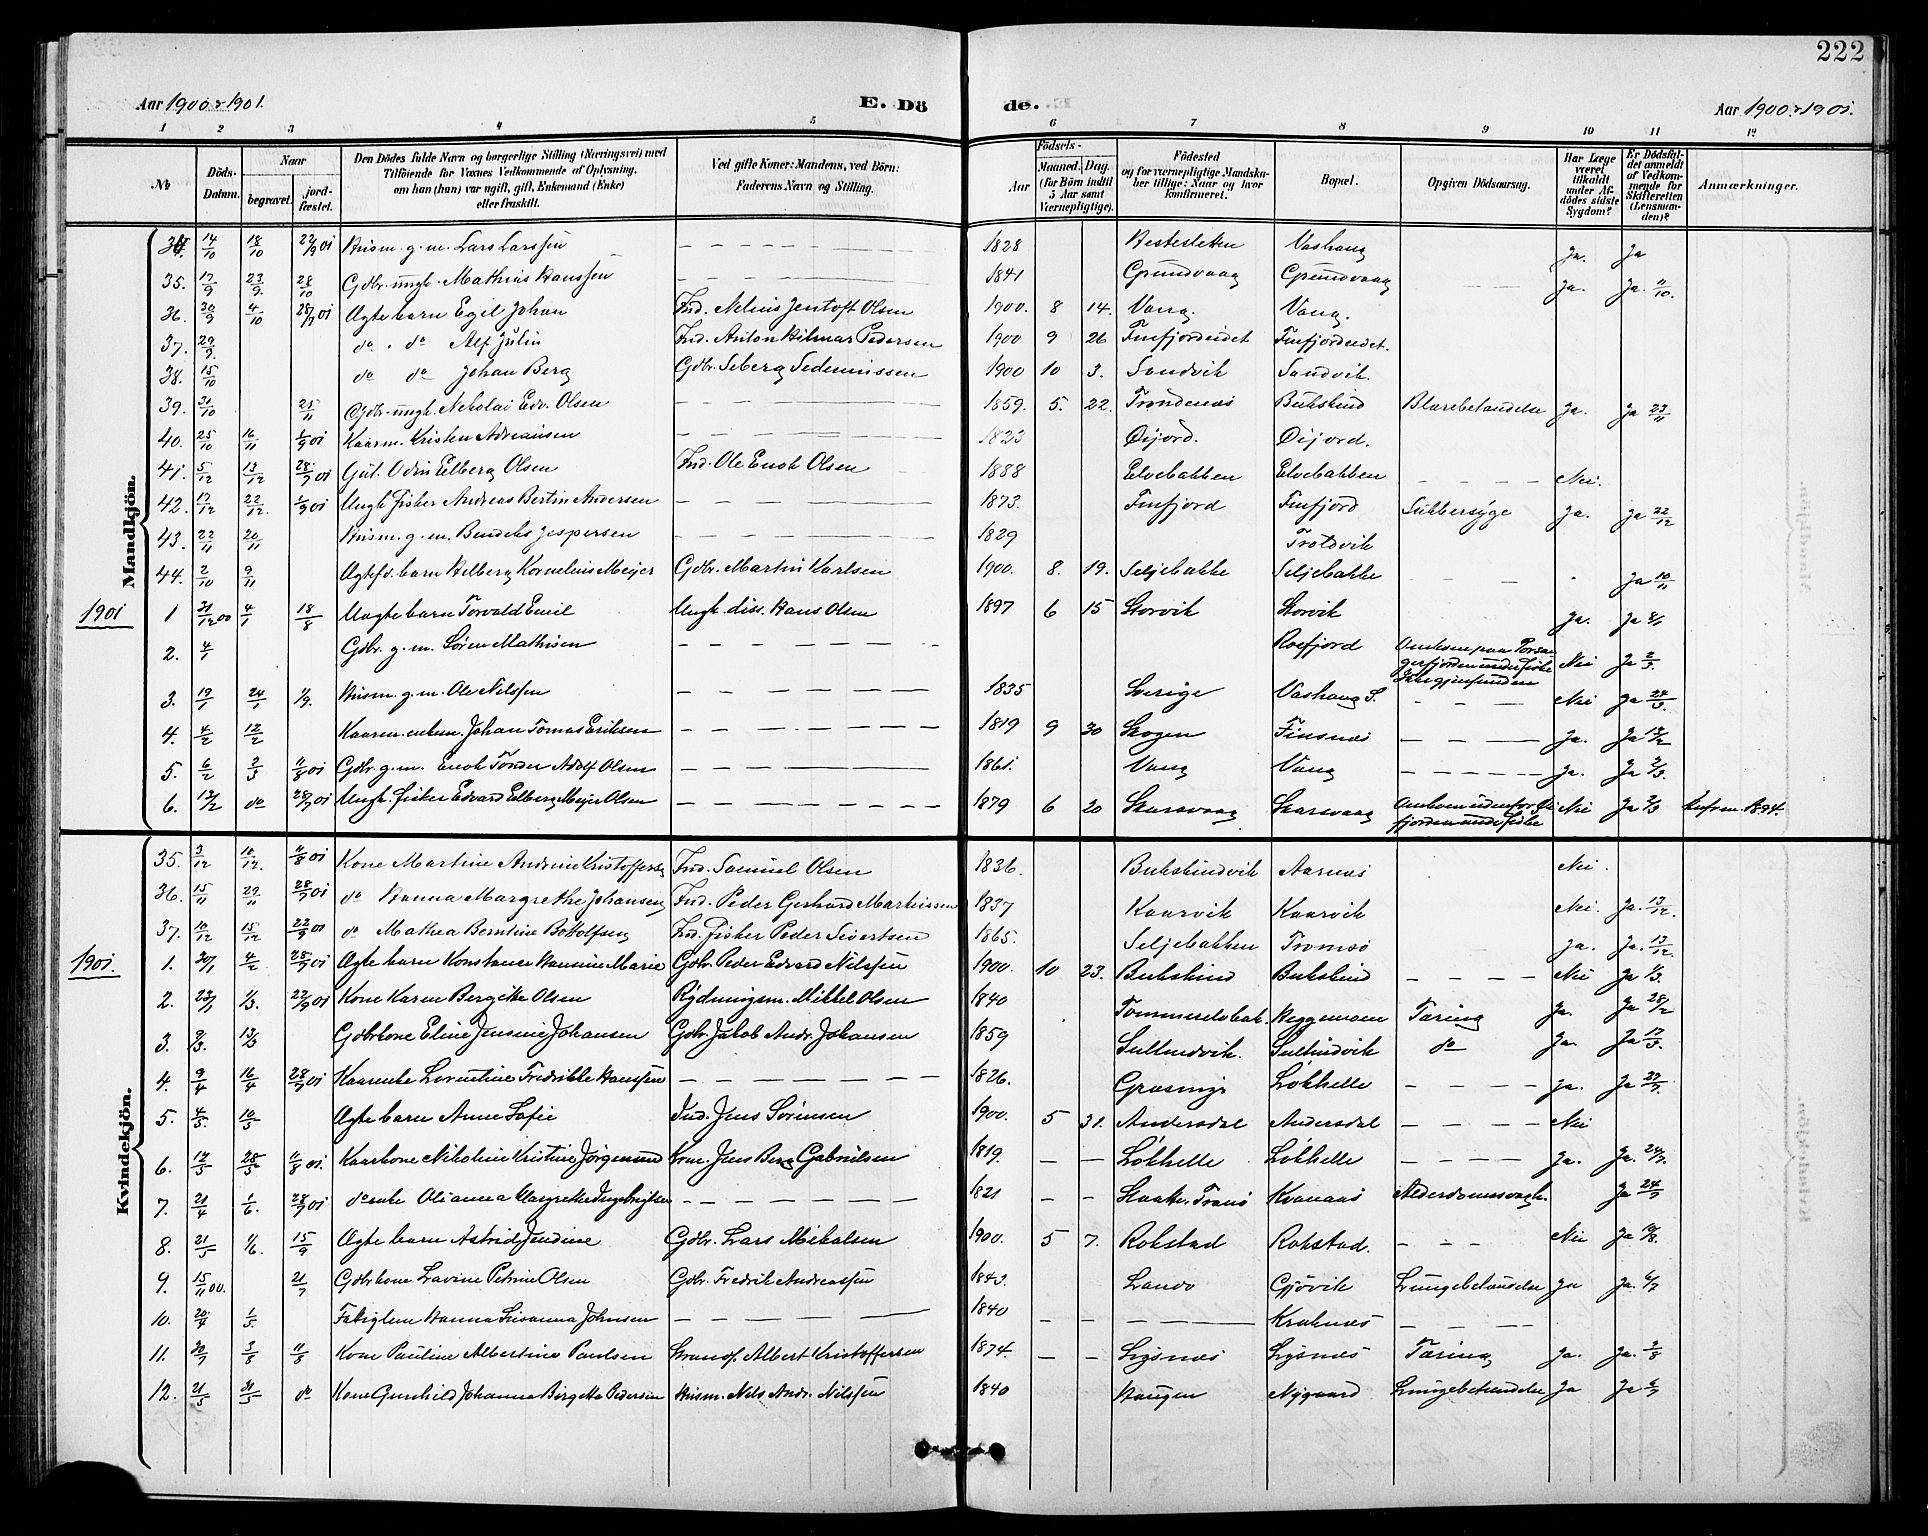 222
Aar 1900 & 1901. E. Dö de. Aar 1900 & 1901.
1 2 3 4 5 6 7 8 9 10 11 12
No Döds-Datum. Naar begravet. jord-fæstet. Den Dödes fulde Navn og borgerlige Stilling (Næringsvei) med Tilföiende for Voxnes Vedkommende af Oplysning, om han (hun) var ugift, gift, Enkemand (Enke) eller fraskilt. Ved gifte Koner: Mandens, ved Börn: Faderens Navn og Stilling. Födsels- Aar Maaned. Dag. (for Börn indtil 5 Aar samt Værnepligtige). Födested og for værnepligtige Mandska-ber tillige: Naar og hvor konfirmeret. Bopæl. Opgiven Dödsaarsag. Har Læge været tilkaldt under Af-dödes sidste Sygdom? Er Dödsfal-det anmeldt af Vedkom-mende for Skifteretten (Lensman-den)? Anmærkninger.
Mandkjön.
34. 14/10 18/10 22/9 01 Husm. g. m. Lars Larssen — — — 1828 Hestesletten Vashaug Ja. Ja
35. 17/9 23/9. 28/10 Gdbr. ungk. Mathias Hanssen — — — 1841 Grundvaag Grundvaag — — Ja. Ja. 11/10.
36. 30/9 4/10 28/7 01 Ægte barn Egil Johan Ind. Nelius Jentoft Olsen 1900. 8 14. Vang. Vang.
37. 29/9. do. do Alf Julin Ind. Anton Hilmar Pedersen 1900 9 26 Finfjordeidet Finfjordeidet.
38. 15/10 do do Johan Berg Gdbr. Seberg Sedeniussen 1900 10 3. Sandvik Sandvik.
39. 31/10 25/11 Gdbr. ungk. Nikolai Edv. Olsen — — — 1859. 5. 22. Trondenæs Bukskind Blærebetændelse Ja. Ja 23/11
40. 25/10 16/11 1/9 01 Kaarm. Kristen Adreansen — — — 1823 Øijord. Øijord.
41. 5/12 13/12 28/7 01 Gut. Odin Elberg Olsen Ind. Ole Enok Olsen 1888 Elvebakken Elvebakken — — — Nei.
42. 17/12 22/12. 1/9 01 Ungk. fisker Andreas Bertin Andersen — — — 1873. Finfjord Finfjord Sukkersyge Ja. Ja 22/12
43. 22/11 20/11 Husm. g. m. Bendeks Jespersen — — — 1829 Troldvik
44. 2/10 9/11 Ægtefd. barn Hilberg Kornelius Meijer Gdbr. Martin Karlsen 1900. 8. 19. Seljebakke Seljebakke — — — Ja 10/11
1901 1 31/12 00 4/1 18/8 Uægte barn Torvald Emil Ungk. diss. Hans Olsen 1897 6 15 Storvik Storvik Ja. Ja 8/1
2. 4/1 Gdbr. g. m. Søren Mathisen — — — Rosfjord Omkom paa Porsangerfjorden under fiske Ikke gjenfunden Nei Ja 2/3
3. 19/1 24/1 1/9. Husm. g. m. Ole Nilssen — — — 1835 Sverige Vashaug S. — — — Nei Ja 24/3.
4. 4/2 12/2 Kaarm. enkem. Johan Tomas Eriksen — — — 1819 9 30 Skogen Finsnæs — — — Ja. Ja 12/2
5. 6/2 2/3 11/8 01 Gdbr. g. m. Enok Tønder Adolf Olsen — — — 1861. Vang Vang — — — Ja. Ja 2/3.
6. 12/2 do 28/7 01 Ungk. fisker Edvard Elberg Meijer Olsen — — — 1879 6 20 Skarsvaag Skarsvaag Omkom udenfor fjorden under fiske Nei Ja 2/3 Konfirm. 1894.
Kvindekjön.
35. 3/12 10/12. 11/8 01 Kone Martine Andrine Kristoffersg Ind. Samuel Olsen 1836. Bukskindvik Aarnæs Nei.
36. 15/11 29/11 28/7 01 do Hanna Margrethe Johanseng Ind. Peder Gerhard Markussen 1837 Kaarvik Kaarvik Nei. Ja. 13/12.
37. 10/12 15/12 22/9 01 do Mathea Berntine Botolfseng Ind. fisker Peder Sivertsen 1865. Seljebakken Tromsø Ja. Ja. 13/12
1901. 1. 20/1 4/2 28/7 01 Ægte barn Konstance Hansine Marie Gdbr. Peder Edvard Nilssen 1900. 10 23. Bukskind Bukskind — — — Nei Ja 1/3.
2. 23/1 1/3. 22/9 01 Kone Karen Bergitte Olsen Rydningsm. Mikkel Olsen 1840 Tommerelvbak. Heggemoen Tæring Ja. Ja 28/2
3. 9/3. 13/3 Gdbrkone Eline Jensine Johansen Gdbr. Jakob Andr. Johansen 1859 Sultindvik. Sultindvik do Ja. Ja 17/3.
4. 9/4 16/4 28/7 01 Kaarenke Lorentine Fredrikke Hanssen — — — 1826. Grasmyr Løkhelle — — — Ja. Ja 27/7
5. 4/5. 10/5 Ægte barn Anne Sofie Ind. Jens Sörensen 1900. 5 31. Andersdal Andersdal — — — Nei
6. 17/5 28/5 11/8 01. Kaarkone Nikoline Kristine Jörgensen Kom. Jens Berg Gabrielsen 1819. — — Løkhelle Løkhelle — — — Ja. Ja. 24/7.
7. 21/4 1/6 28/7 01 do enke Olianna Margrethe Ingebrigtsen — — — 1821 — — Kvanaas Alderdomssvaghe. Ja 24/7
8. 21/5 1/6. 15/9 Ægte barn Astrid Jendine Gdbr. Lars Mikalsen 1900. 5 7. Rokstad Rokstad. — — — Nei Ja 10/8.
9. 15/11 00. 21/7 Gdbrkone Lavine Petrine Olsen Gdbr. Fredrik Andreassen 1843. Lanes Gjøvik Lungebetændelse Ja Ja. 6/7
10. 20/4 1/5. Fattiglem Hanna Susanna Johnsen — — — 1840 — — — Kraknæs — — —
11. 30/7 3/8 11/8 Kone Pauline Albertine Paulsen Strands. Albert Kristoffersen 1874. — — Lysnæs Lysnæs Tæring Ja. Ja. 3/8
12. 21/5 31/5 do Kone Gunhild Johanna Birgitte Pedersen Husm. Nils Andr. Nilssen 1840 Haugen Nygaard Lungebetændelse Ja Ja 6/7